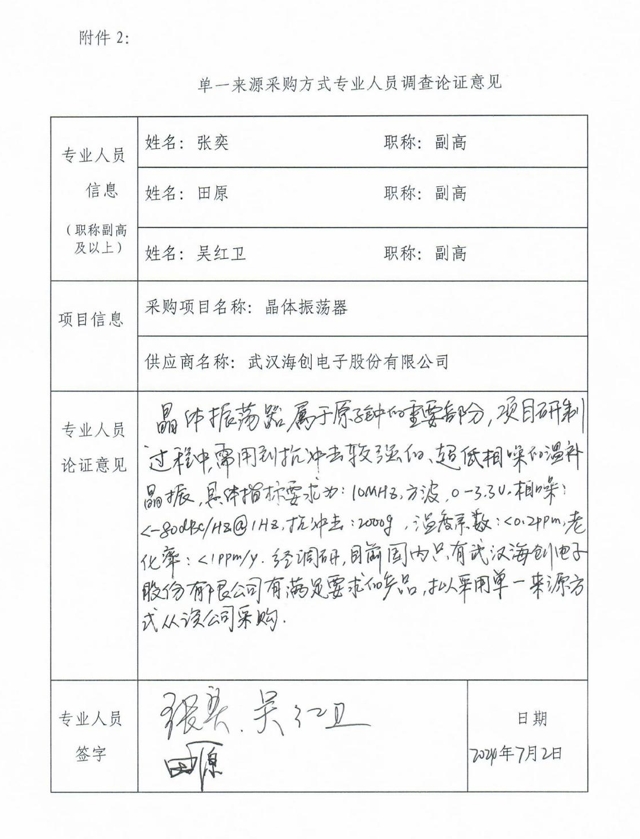 附件2：
单一来源采购方式专业人员调查论证意见
专业人员
信息
（职称副高
及以上）
姓名：张奕 职称：副高
姓名：田原 职称：副高
姓名：吴红卫 职称：副高
项目信息
采购项目名称：晶体振荡器
供应商名称：武汉海创电子股份有限公司
专业人员
论证意见
晶体振荡器属于原子钟的重要部分，项目研制
过程中，需用到抗冲击较强的、超低相噪的温补
晶振，具体指标要求为：10MHz，方波，0-3.3V，相噪：
<-80dBc/Hz@1Hz，抗冲击：2000g，温度系数：<0.2ppm，老
化率：<1ppm/y. 经调研，目前国内只有武汉海创电子
股份有限公司有满足要求的产品，拟采用单一来源方
式从该公司采购.
专业人员
签字
张奕、吴红卫
田原
日期
2024年7月2日